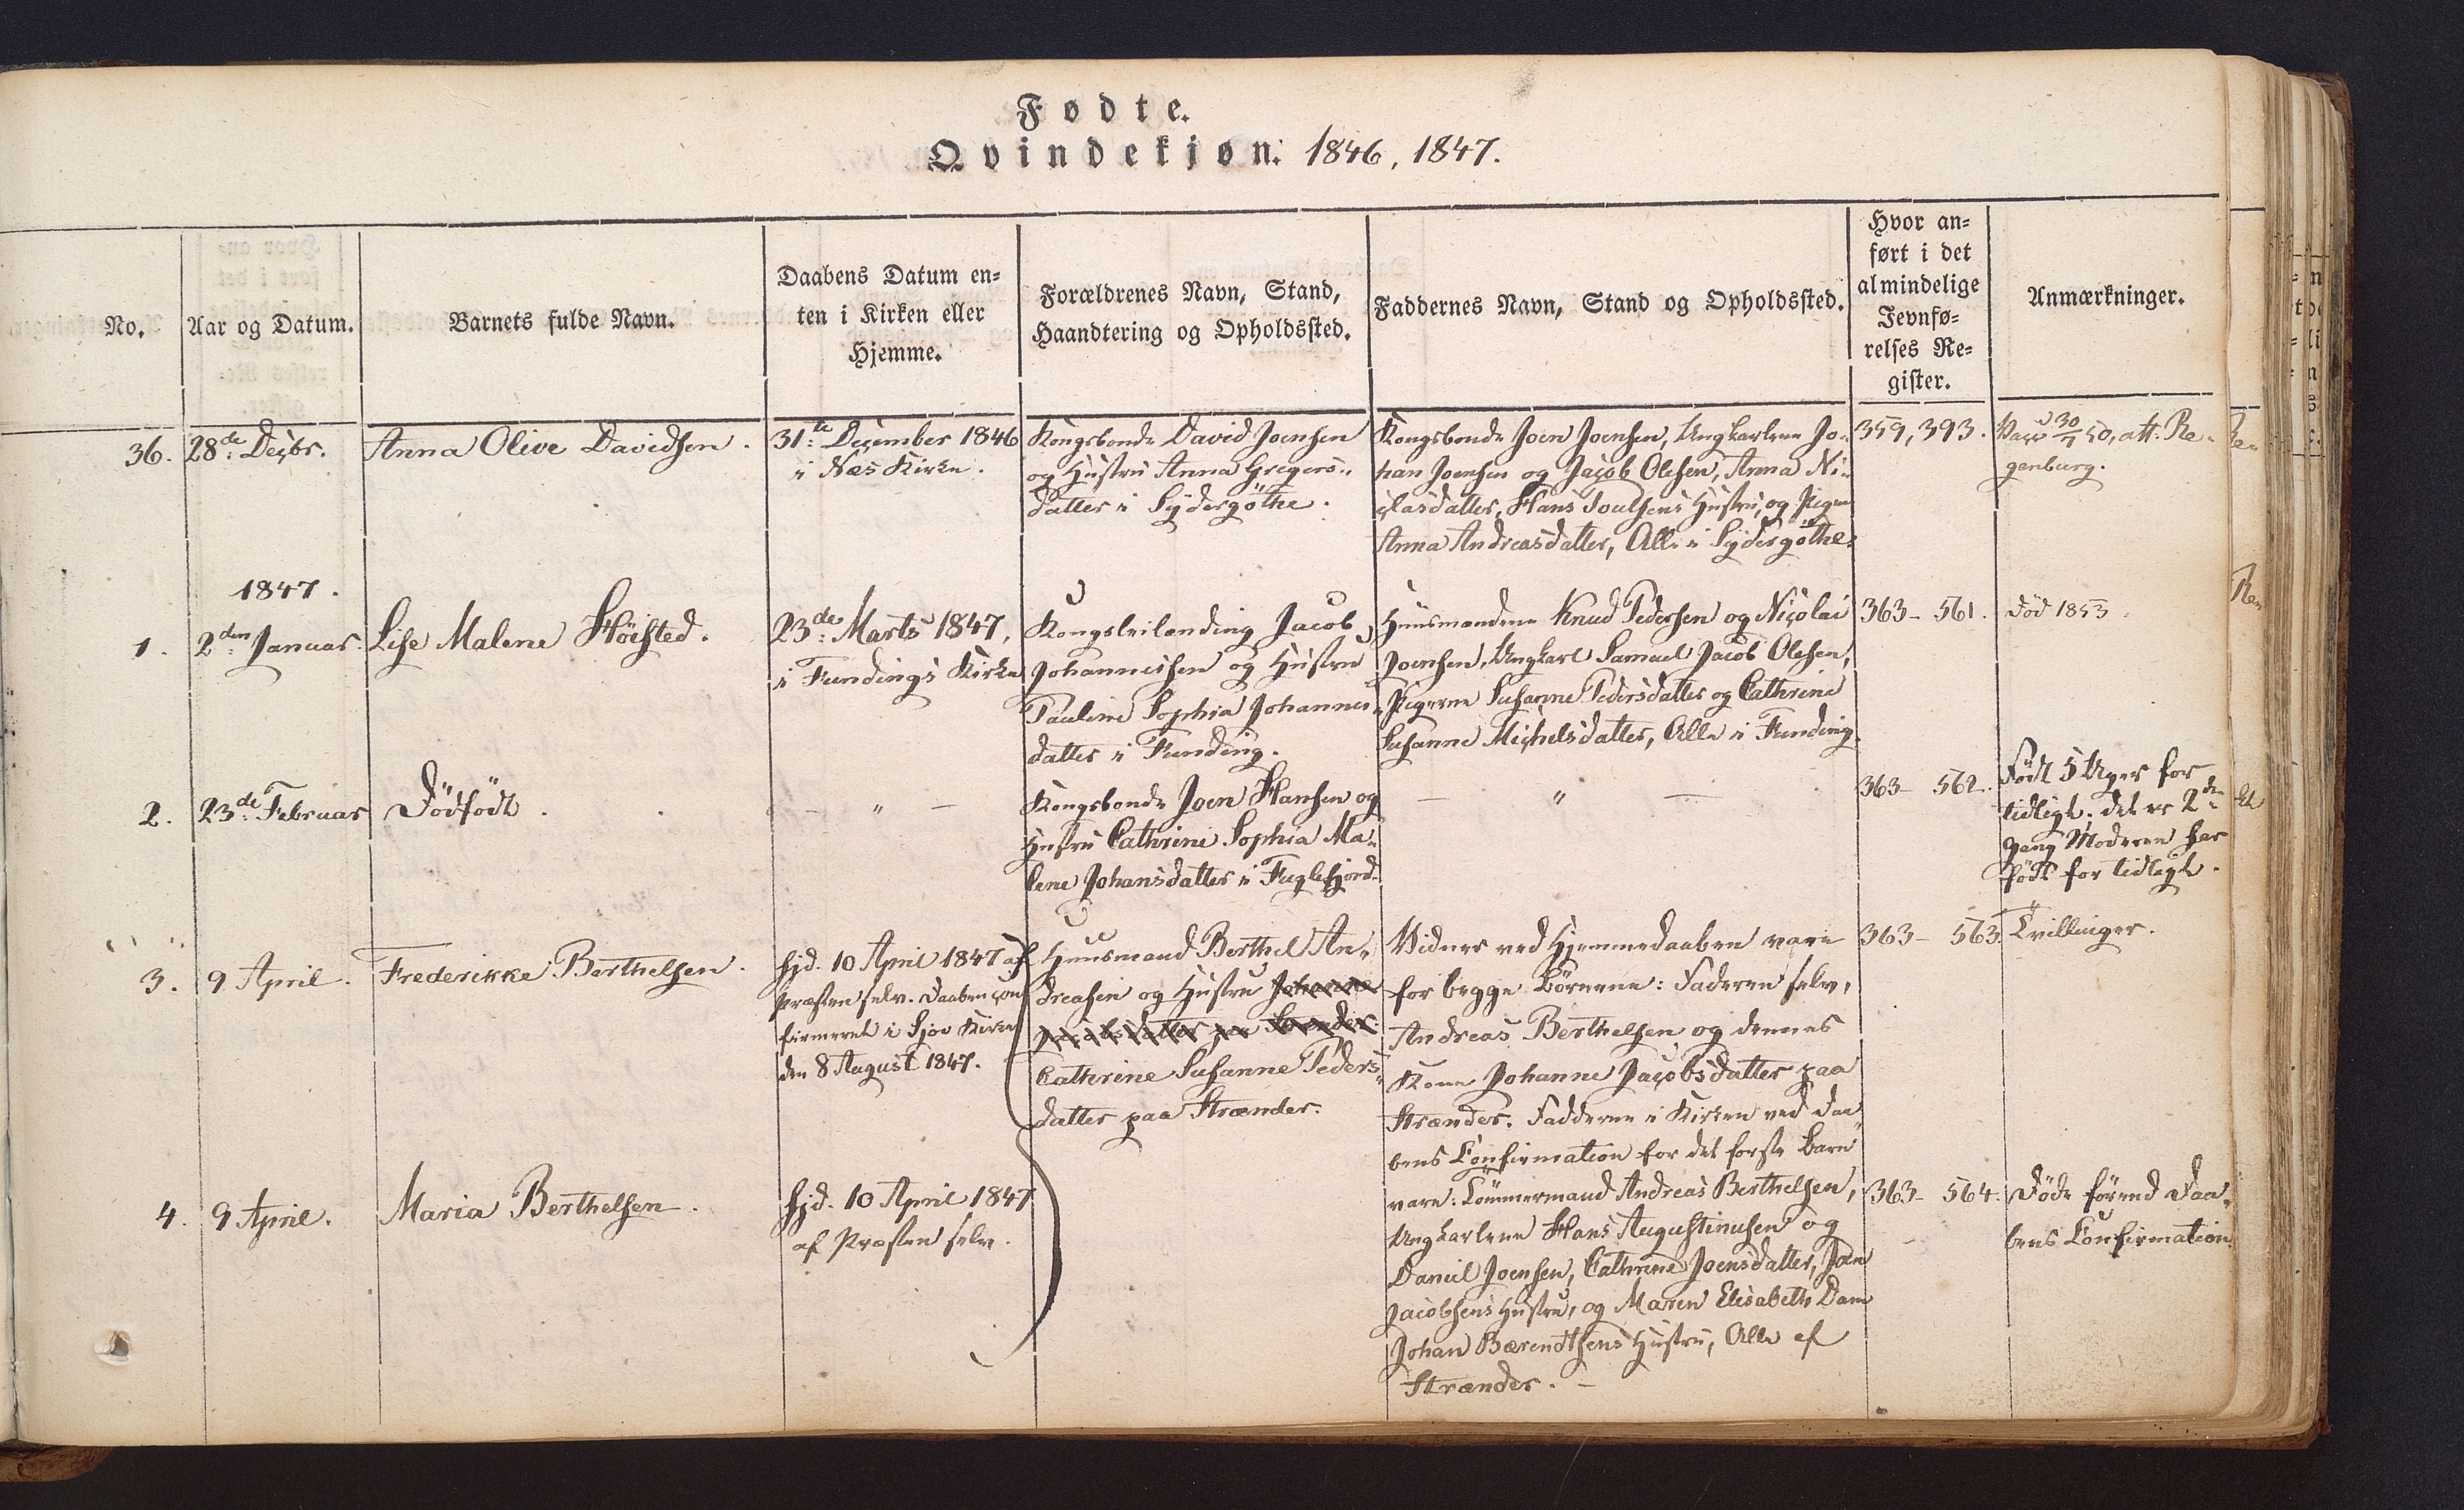 Fødte.
Qvindekjøn. 1846, 1847.
No.
Aar og Datum.
Barnets fulde Navn.
Daabens Datum en=
ten i Kirken eller
Hjemme.
Forældrenes Navn, Stand,
Haandtering og Opholdssted.
Faddernes Navn, Stand og Opholdssted.
Hvor an=
ført i det
almindelige
Jevnfø=
relses Re=
gister.
Anmærkninger.
36.
28de Decbr.
Anna Olive Davidsen.
31te December 1846
i Næs Kirke.
Kongsbonde David Joensen
og Hustru Anna Gregers=
datter i Sydergöthe.
Kongsbonde Joen Joensen, Ungkarlene Jo=
han Joensen og Jacob Olesen, Anna Ni=
clasdatter, Hans Poulsens Hustru, og Pigen
Anna Andreasdatter, Alle i Sydergöthe.
359, 393.
Vacc. 30/7 50, att. Re=
genburg.
1847.
1.
2den Januar.
Lise Malene Höisted.
23de Marts 1847,
i Fundings Kirke
Kongsleilænding Jacob
Johannessen og Hustru
Pauline Sophia Johannes=
datter i Funding.
Huusmændene Knud Pedersen og Nicolai
Joensen, Ungkarl Samuel Jacob Olesen,
Pigerne Susanne Pedersdatter og Cathrine
Susanne Michelsdatter, Alle i Funding.
363- 561.
Död 1853.
2.
23de Februar
Dödfödt.
— " —
Kongsbonde Joen Hansen og
Hustru Cathrine Sophia Ma=
lene Johansdatter i Fuglefjord.
— " —
363- 562.
Födt 5 Uger for
tidligt. det er 2den
Gang Moderen har
födt for tidligt.
3.
9 April.
Frederikke Berthelsen.
hjd. 10 April 1847 af
Præsten selv. Daaben con=
firmeret i Sjov Kirke
den 8 August 1847.
Huusmand Berthel An=
dreasen og Hustru Johanne
Jacobsdatter paa Strænder.
Cathrine Susanne Peders=
datter paa Strænder.
Vidner ved Hjemmedaaben vare
for begge Börnene: Faderen selv,
Andreas Berthelsen og dennes
Kone Johanne Jacobsdatter paa
Strænder. Fadderne i Kirken ved Daa=
bens Confirmation for det förste Barn
vare: Tömmermand Andreas Berthelsen,
Ungkarlene Hans Augustinusen og
Daniel Joensen, Cathrine Joensdatter, Joen
Jacobsens Hustru, og Maren Elisabeth Dam
Johan Bærendtsens Hustru, Alle af
Strænder. —
363- 563.
Tvillinger.
4.
9 April.
Maria Berthelsen.
hjd. 10 April 1847
af Præsten selv.
363- 564.
Döde förend Daa=
bens Confirmation.